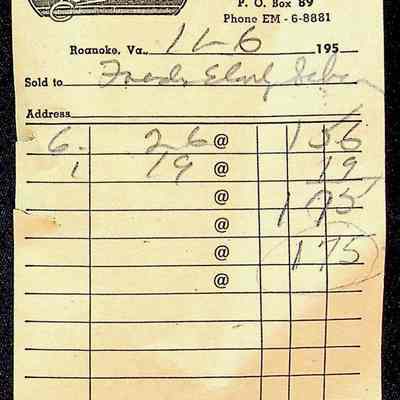 P. O. Box 89
Phone EM - 6-8881
Roanoke, Va., 12-6 195
Sold to
Address
6. 26 @ 156
1 19 @ 19
@ 175
@ 175
@
@